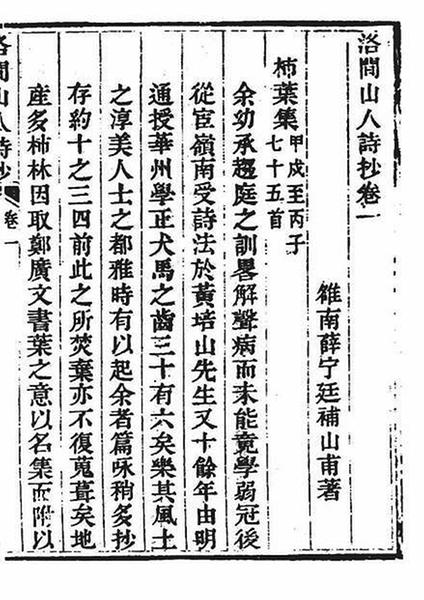 洛間山人詩抄卷一
雒南薛宁廷補山甫著
柹葉集甲戌至丙子
七十五首
余幼承趨庭之訓畧解聲病而未能竟學弱冠後
從宦嶺南受詩法於黃培山先生又十餘年由明
通授華州學正犬馬之齒三十有六矣樂其風土
之淳美人士之都雅時有以起余者篇咏稍多抄
存約十之三四前此之所焚棄亦不復蒐葺矣地
產多柹林因取鄭廣文書葉之意以名集而附以
洛間山人詩抄
卷一